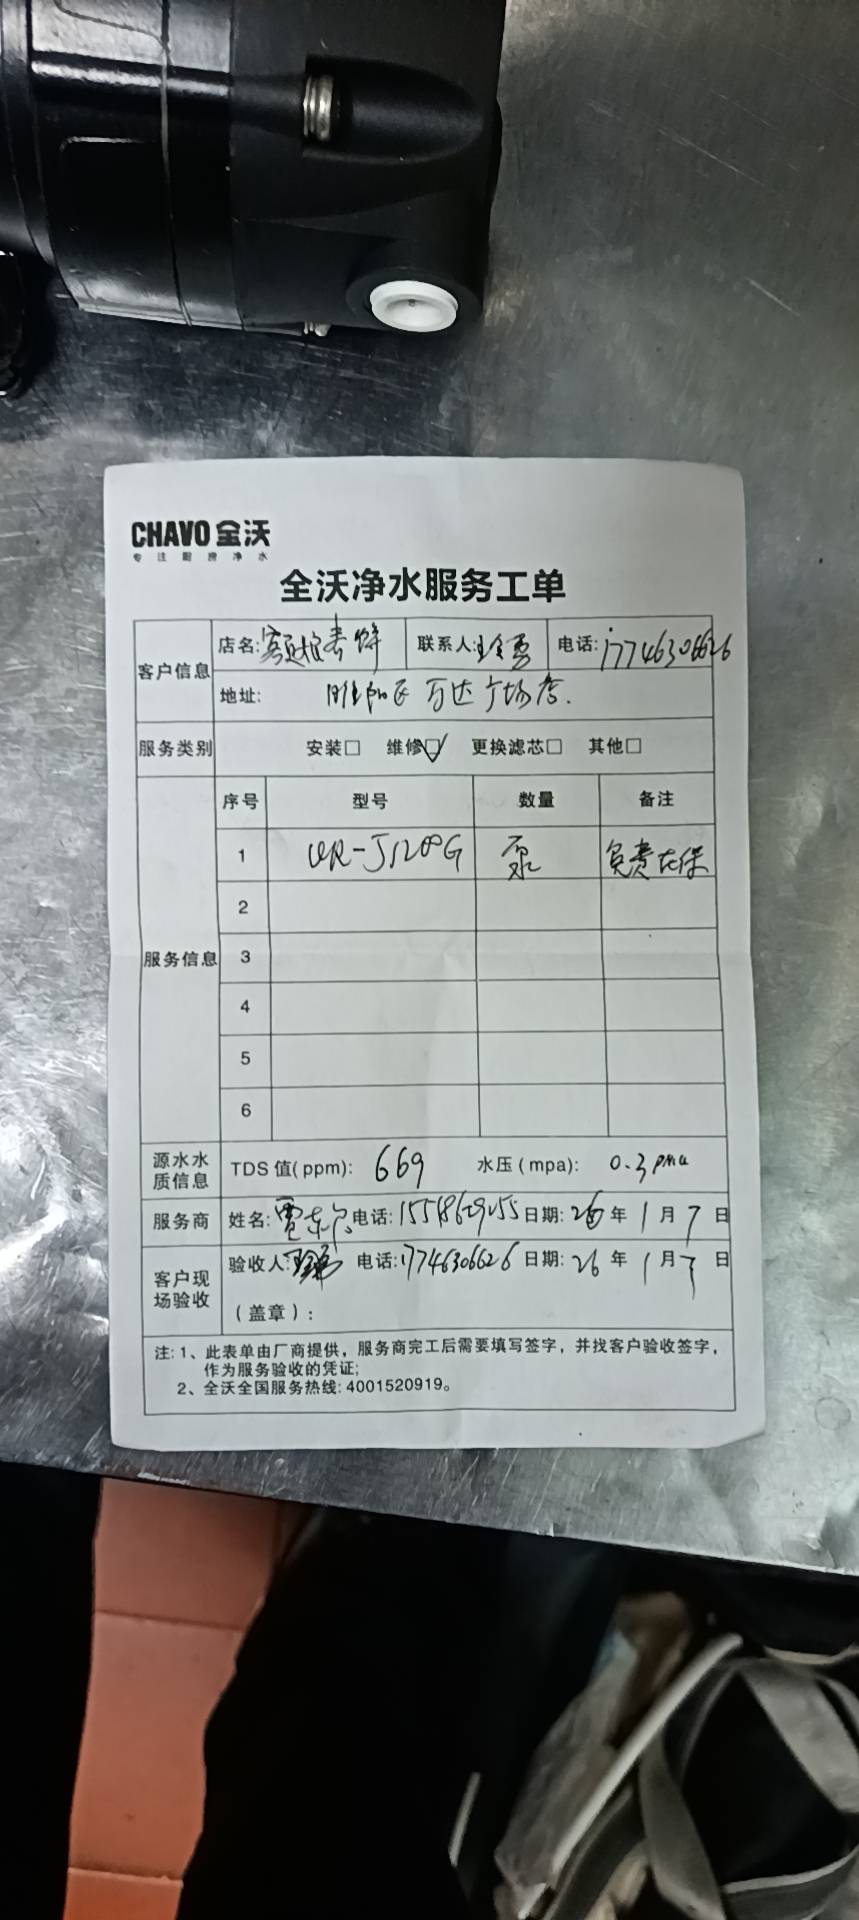 CHAVO 全沃
专注厨房净水
全沃净水服务工单
客户信息
店名: 联系人: 电话: 17746306626
地址: 睢阳区万达广场店.
服务类别 安装□ 维修☑ 更换滤芯□ 其他□
服务信息
序号 型号 数量 备注
1 UR-J1200G 泵 免费在保
2
3
4
5
6
源水水质信息 TDS 值(ppm): 669 水压(mpa): 0.3
服务商 姓名: 电话: 日期: 26 年 1 月 7 日
客户现场验收 验收人: 电话: 17746306626 日期: 26 年 1 月 7 日
(盖章):
注: 1、此表单由厂商提供，服务商完工后需要填写签字，并找客户验收签字，
作为服务验收的凭证;
2、全沃全国服务热线: 4001520919。